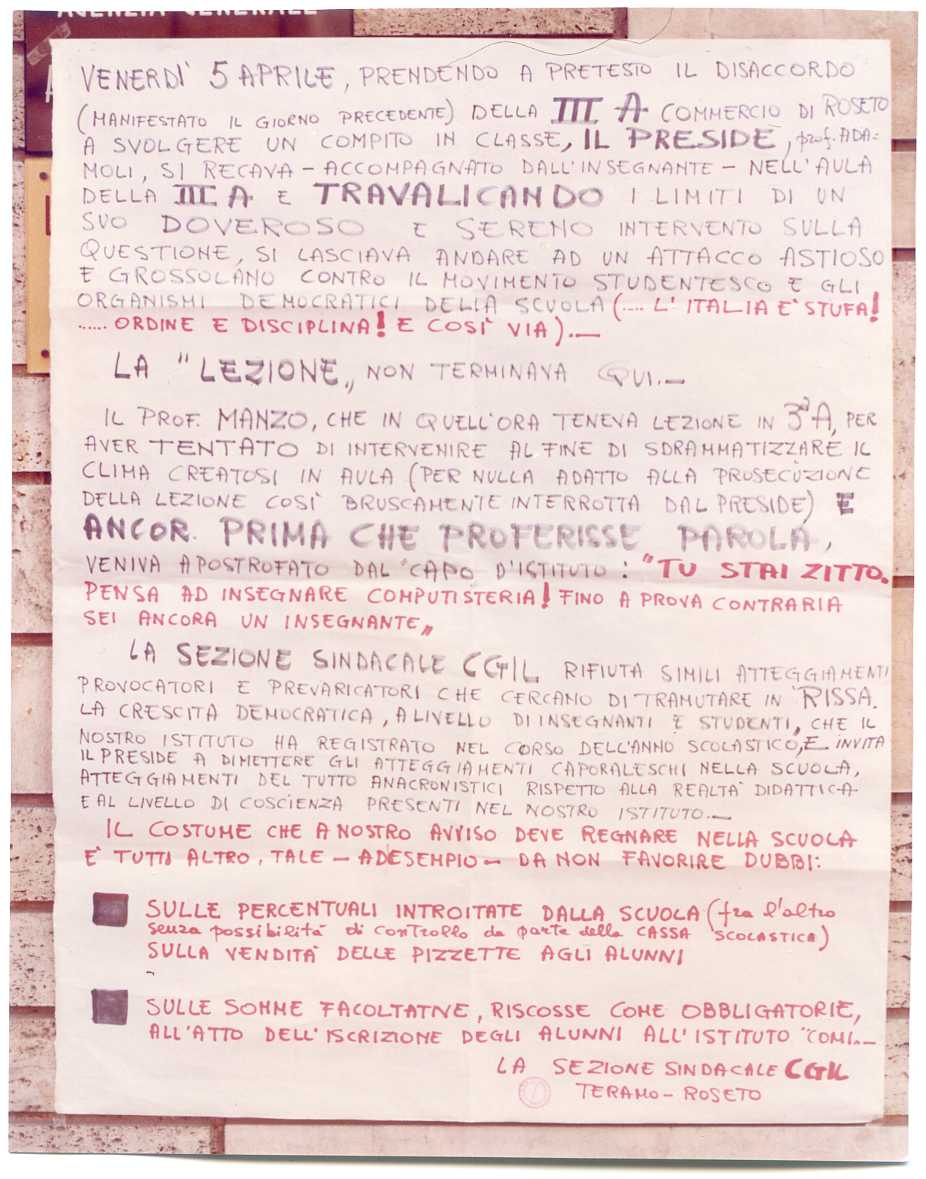 AGENZIA GENERALE
VENERDÌ 5 APRILE, PRENDENDO A PRETESTO IL DISACCORDO
(MANIFESTATO IL GIORNO PRECEDENTE) DELLA III A COMMERCIO DI ROSETO
A SVOLGERE UN COMPITO IN CLASSE, IL PRESIDE, prof. ADA=
MOLI, SI RECAVA - ACCOMPAGNATO DALL'INSEGNANTE - NELL'AULA
DELLA III A E TRAVALICANDO I LIMITI DI UN
SUO DOVEROSO E SERENO INTERVENTO SULLA
QUESTIONE, SI LASCIAVA ANDARE AD UN ATTACCO ASTIOSO
E GROSSOLANO CONTRO IL MOVIMENTO STUDENTESCO E GLI
ORGANISMI DEMOCRATICI DELLA SCUOLA (.... L'ITALIA E' STUFA!
...... ORDINE E DISCIPLINA! E COSI' VIA).—
LA "LEZIONE„ NON TERMINAVA QUI.—
IL PROF. MANZO, CHE IN QUELL'ORA TENEVA LEZIONE IN 3ª A, PER
AVER TENTATO DI INTERVENIRE AL FINE DI SDRAMMATIZZARE IL
CLIMA CREATOSI IN AULA (PER NULLA ADATTO ALLA PROSECUZIONE
DELLA LEZIONE COSI' BRUSCAMENTE INTERROTTA DAL PRESIDE) E
ANCOR PRIMA CHE PROFERISSE PAROLA,
VENIVA APOSTROFATO DAL CAPO D'ISTITUTO: "TU STAI ZITTO.
PENSA AD INSEGNARE COMPUTISTERIA! FINO A PROVA CONTRARIA
SEI ANCORA UN INSEGNANTE„
LA SEZIONE SINDACALE CGIL RIFIUTA SIMILI ATTEGGIAMENTI
PROVOCATORI E PREVARICATORI CHE CERCANO DI TRAMUTARE IN RISSA.
LA CRESCITA DEMOCRATICA, A LIVELLO DI INSEGNANTI E STUDENTI, CHE IL
NOSTRO ISTITUTO HA REGISTRATO NEL CORSO DELL'ANNO SCOLASTICO, E INVITA
IL PRESIDE A DIMETTERE GLI ATTEGGIAMENTI CAPORALESCHI NELLA SCUOLA,
ATTEGGIAMENTI DEL TUTTO ANACRONISTICI RISPETTO ALLA REALTA' DIDATTICA
E AL LIVELLO DI COSCIENZA PRESENTI NEL NOSTRO ISTITUTO.—
IL COSTUME CHE A NOSTRO AVVISO DEVE REGNARE NELLA SCUOLA
E' TUTTI ALTRO, TALE - AD ESEMPIO - DA NON FAVORIRE DUBBI:
SULLE PERCENTUALI INTROITATE DALLA SCUOLA (fra l'altro
senza possibilità di controllo da parte della CASSA SCOLASTICA)
SULLA VENDITA DELLE PIZZETTE AGLI ALUNNI
SULLE SOMME FACOLTATIVE, RISCOSSE COME OBBLIGATORIE,
ALL'ATTO DELL'ISCRIZIONE DEGLI ALUNNI ALL'ISTITUTO "COMI.—
LA SEZIONE SINDACALE CGIL
TERAMO - ROSETO